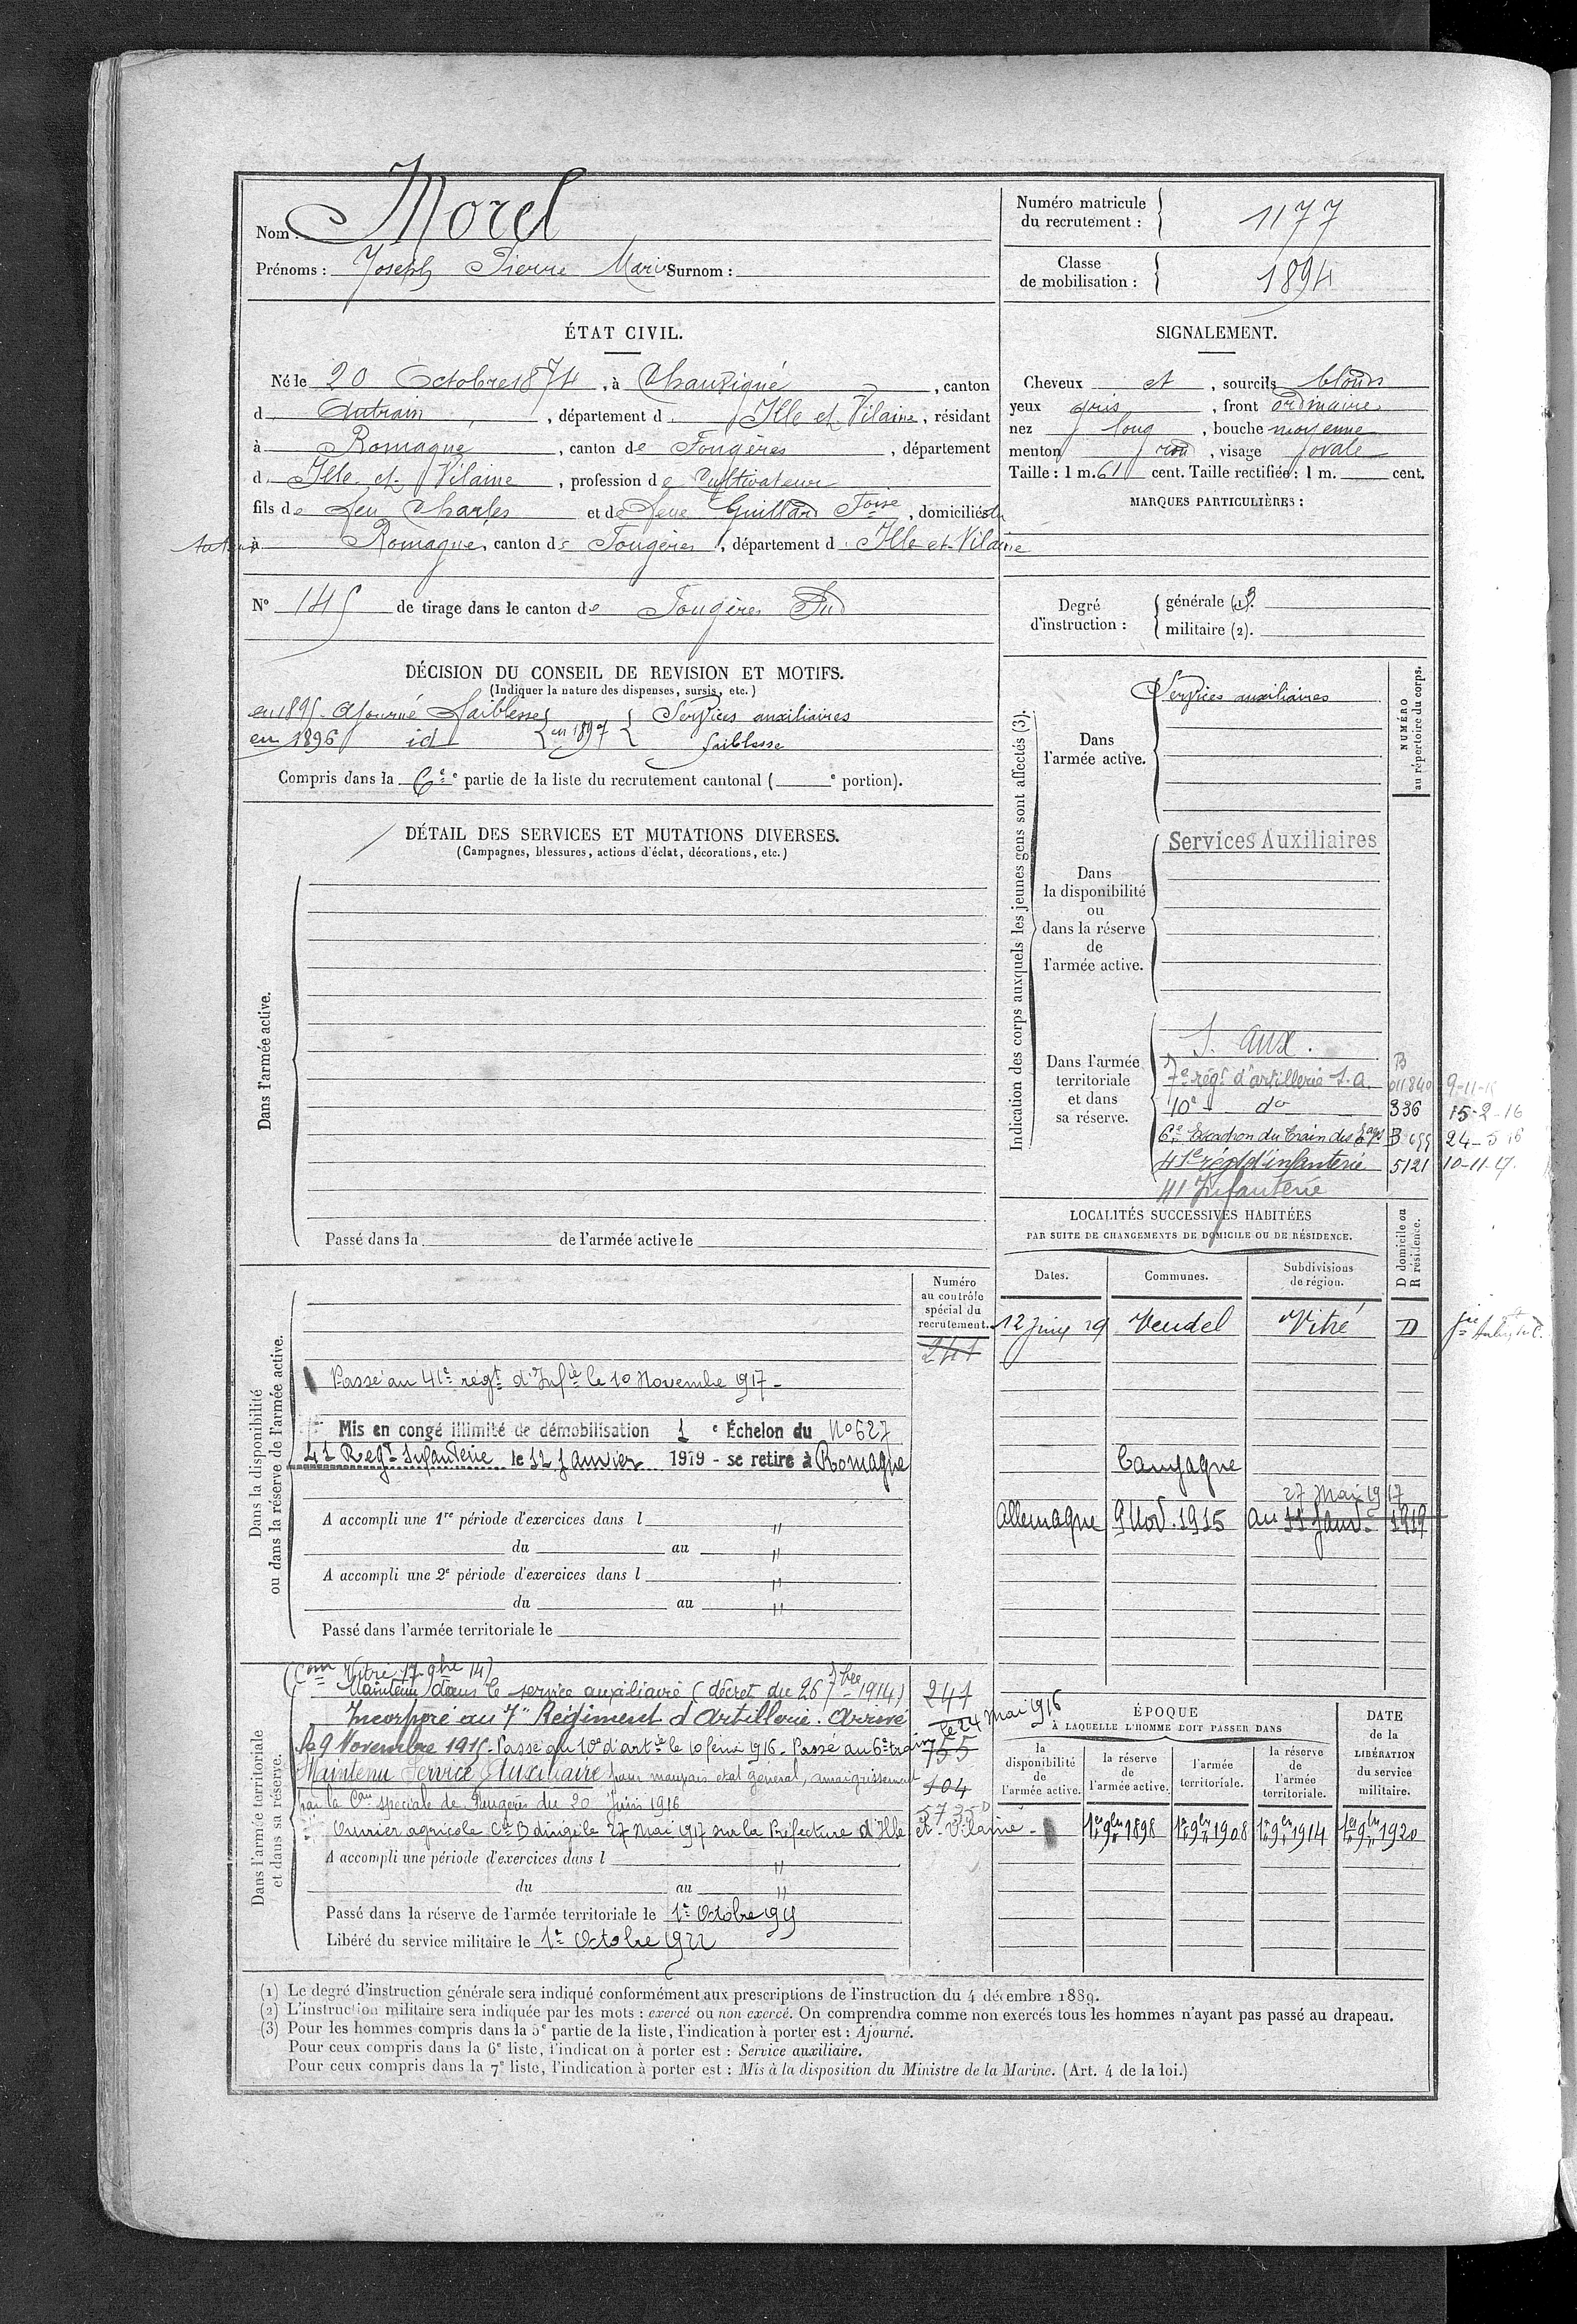 Nom : Morel
Prénoms : Joseph Pierre Marie Surnom :
Numéro matricule du recrutement : 1177
Classe de mobilisation : 1894
ÉTAT CIVIL.
Né le 20 Octobre 1874, à Chauvigné, canton
d Antrain, département d Ille et Vilaine, résidant
à Romagné, canton de Fougères, département
d Ille et Vilaine, profession de Cultivateur
fils de feu Charles et de feue Guillard Foise, domiciliés
à Romagné, canton de Fougères, département d Ille et Vilaine
N° 145 de tirage dans le canton de Fougères Sud
SIGNALEMENT.
Cheveux et, sourcils blonds
yeux gris, front ordinaire
nez long, bouche moyenne
menton rond, visage ovale
Taille : 1 m. 61 cent. Taille rectifiée : 1 m. cent.
MARQUES PARTICULIÈRES :
Degré d'instruction :
générale (1). 3
militaire (2).
DÉCISION DU CONSEIL DE REVISION ET MOTIFS.
(Indiquer la nature des dispenses, sursis, etc.)
en 1895. Ajourné faiblesse
en 1896 id
en 1897
Services auxiliaires
faiblesse
Compris dans la 6e e partie de la liste du recrutement cantonal ( e portion).
DÉTAIL DES SERVICES ET MUTATIONS DIVERSES.
(Campagnes, blessures, actions d'éclat, décorations, etc.)
Dans l'armée active.
Passé dans la de l'armée active le
Indication des corps auxquels les jeunes gens sont affectés (3).
NUMÉRO au répertoire du corps.
Dans l'armée active.
Services auxiliaires
Dans la disponibilité ou dans la réserve de l'armée active.
Services Auxiliaires
Dans l'armée territoriale et dans sa réserve.
S. aux.
7e régt d'artillerie S.A.
10e do 336 15-2-16
6e Escadron du train des Eages 24-5-16
41e régt d'infanterie 5121 10-11-17
41 Infanterie
LOCALITÉS SUCCESSIVES HABITÉES
PAR SUITE DE CHANGEMENTS DE DOMICILE OU DE RÉSIDENCE.
Dates. Communes. Subdivisions de région. D domicile ou R résidence.
12 Juin 19 Vendel Vitré D
Campagne
27 Mai 1917
Allemagne 9 Nov. 1915 au 11 Janv. 1919
Dans la disponibilité ou dans la réserve de l'armée active.
Numéro au contrôle spécial du recrutement.
241
Passé au 41e régt d'Infie le 10 Novembre 1917 -
Mis en congé illimité de démobilisation 1 e Échelon du No 627
41 Regt Infanterie le 12 Janvier 1919 - se retire à Romagné
A accompli une 1re période d'exercices dans l "
du au "
A accompli une 2e période d'exercices dans l "
du au "
Passé dans l'armée territoriale le
Dans l'armée territoriale et dans sa réserve.
(Com on Vitré 17 9bre 14)
Maintenu dans le service auxiliaire (décret du 26 7bre 1914) 241
Incorporé au 7e Régiment d'Artillerie. Arrivé
le 9 Novembre 1915. Passé au 10e d'artie le 10 février 1916. Passé au 6e train le 24 Mai 1916
755
Maintenu Service Auxiliaire pour mauvais état général, amaigrissement
104
par la Con spéciale de Fougères du 20 Juin 1916
Ouvrier agricole Cie B dirigé le 27 mai 1917 sur la Préfecture d'Ille et Vilaine -
A accompli une période d'exercices dans l "
du au "
Passé dans la réserve de l'armée territoriale le 1er Octobre 1915
Libéré du service militaire le 1er Octobre 1922
ÉPOQUE
À LAQUELLE L'HOMME DOIT PASSER DANS
la disponibilité de l'armée active.
la réserve de l'armée active.
l'armée territoriale.
la réserve de l'armée territoriale.
DATE de la LIBÉRATION du service militaire.
1er 9bre 1898 1er 9bre 1908 1er 9bre 1914 1er 9bre 1920
(1) Le degré d'instruction générale sera indiqué conformément aux prescriptions de l'instruction du 4 décembre 1889.
(2) L'instruction militaire sera indiquée par les mots : exercé ou non exercé. On comprendra comme non exercés tous les hommes n'ayant pas passé au drapeau.
(3) Pour les hommes compris dans la 5e partie de la liste, l'indication à porter est : Ajourné.
Pour ceux compris dans la 6e liste, l'indication à porter est : Service auxiliaire.
Pour ceux compris dans la 7e liste, l'indication à porter est : Mis à la disposition du Ministre de la Marine. (Art. 4 de la loi.)